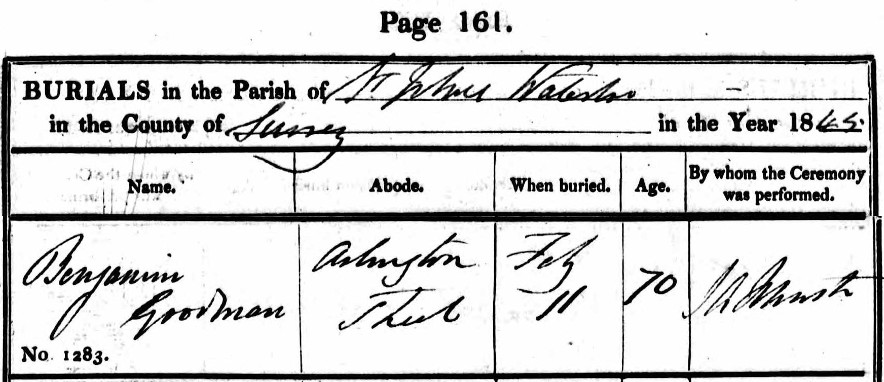 Page 161.
BURIALS in the Parish of St Johns Waterloo
in the County of Surrey in the Year 1845.
Name. Abode. When buried. Age. By whom the Ceremony was performed.
Benjamin Goodman Arlington Street Feby 11 70
No 1283.